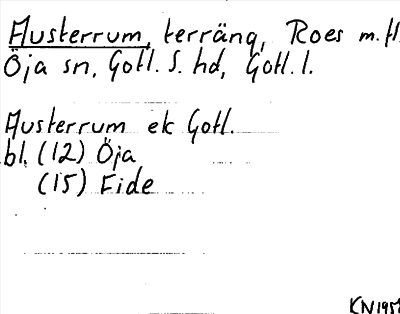 Austerrum, terräng, Roes m.fl.
Öja sn, Gotl. S. hd, Gotl. l.
Austerrum ek Gotl.
bl. (12) Öja
(15) Eide
KN 195